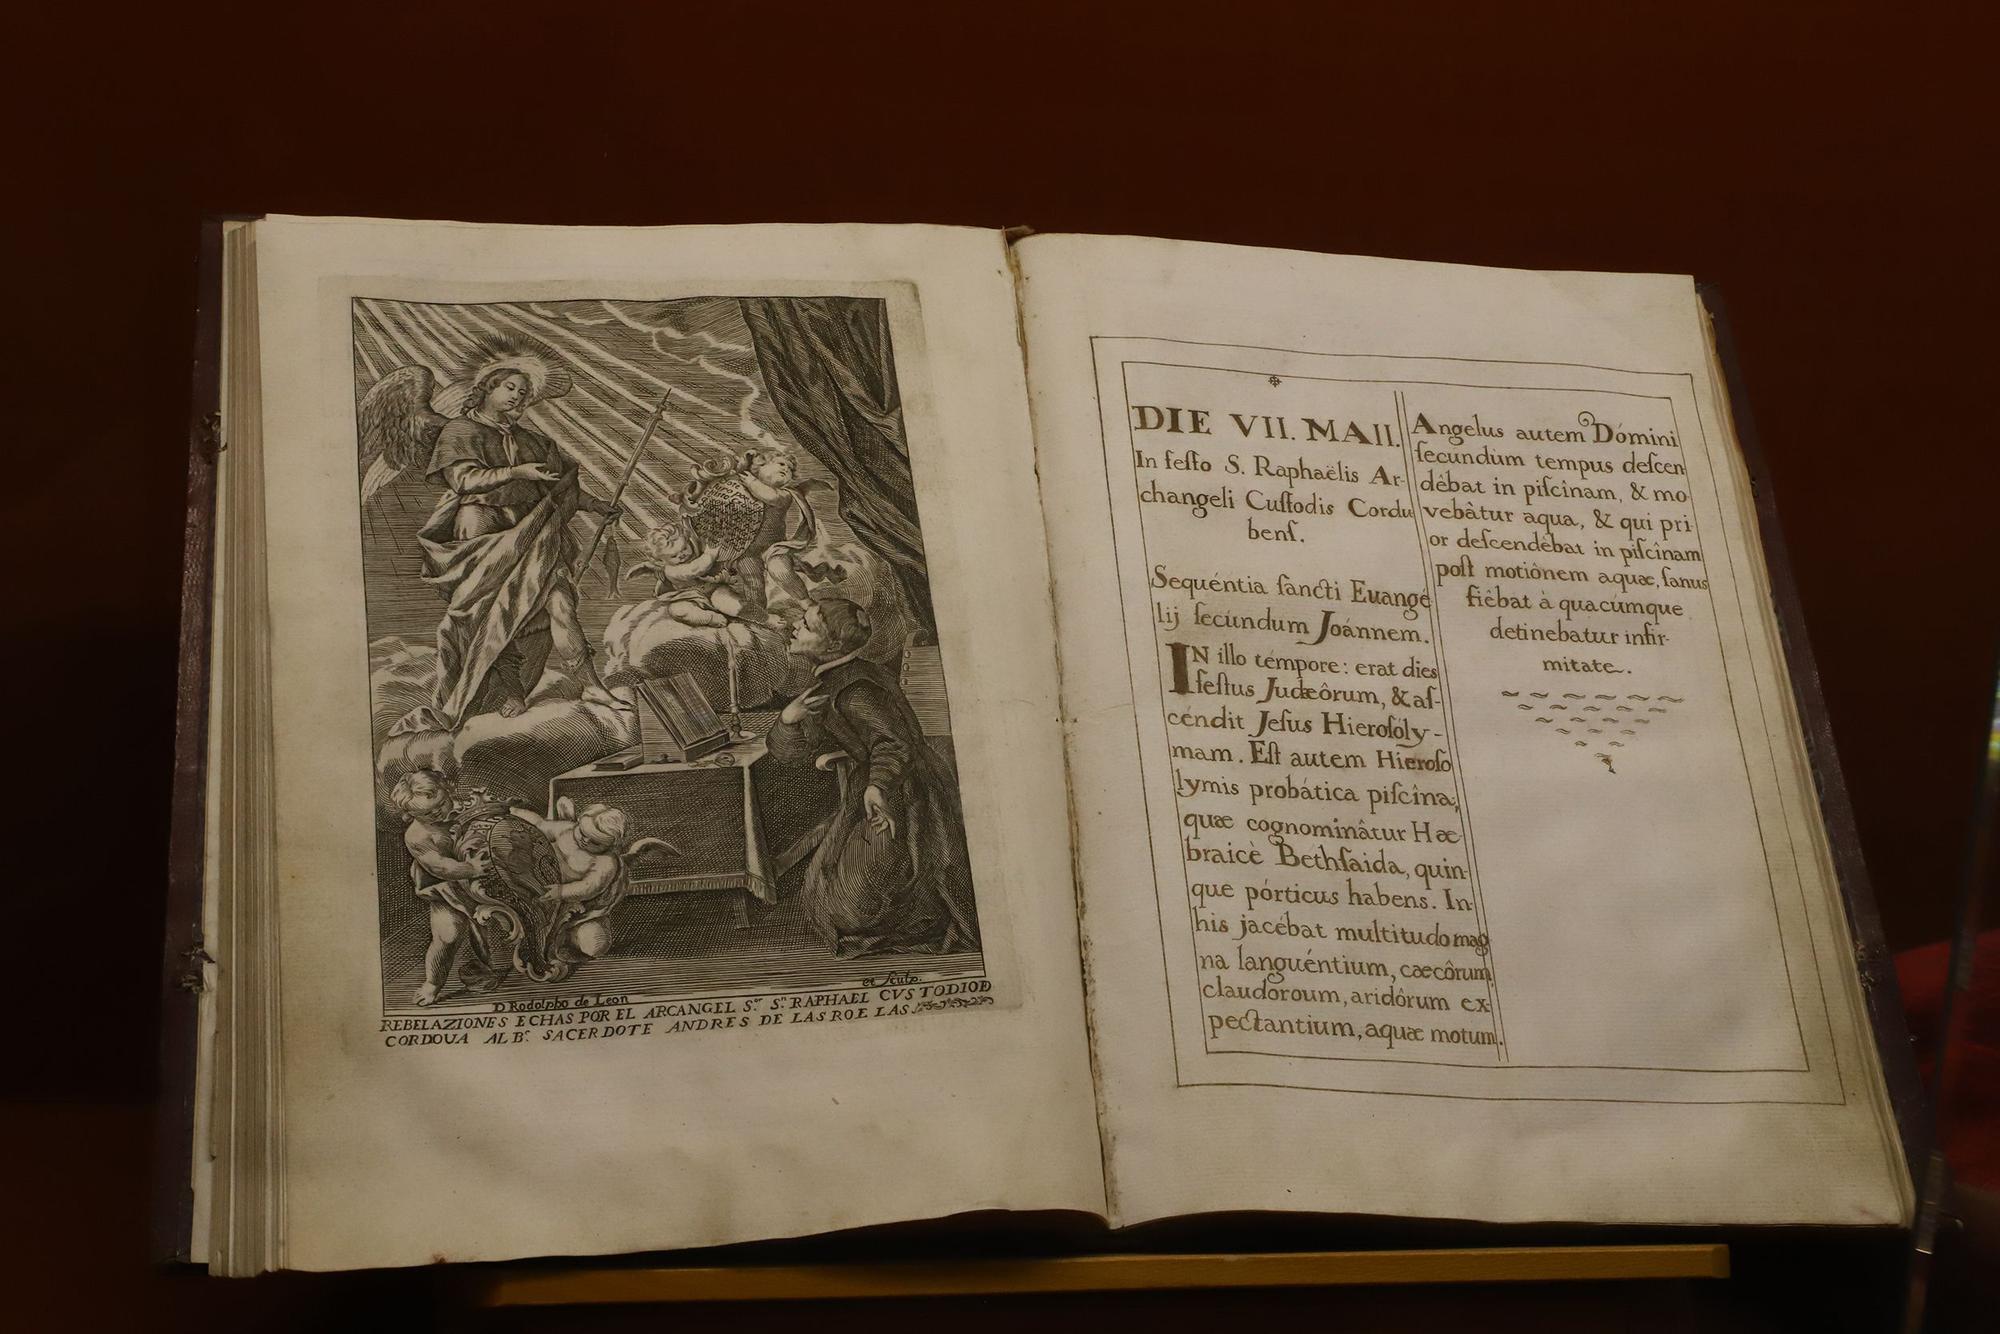 D Rodolpho de Leon
et Sculp.
REBELAZIONES ECHAS POR EL ARCANGEL S.ʳ S.ⁿ RAPHAEL CVSTODIO D
CORDOUA AL B.ᵉ SACERDOTE ANDRES DE LAS ROELAS
DIE VII. MAII.
In feſto S. Raphaëlis Ar-
changeli Cuſtodis Cordu
benſ.
Sequéntia ſancti Euangé
lij ſecúndum Joánnem.
IN illo témpore: erat dies
feſtus Judæôrum, & aſ-
céndit Jeſus Hieroſóly-
mam. Eſt autem Hieroſo
lymis probática piſcîna,
quæ cognominâtur Hæ-
braicè Bethſaida, quin-
que pórticus habens. In
his jacébat multitudo mag
na languéntium, cæcôrum
claudoroum, aridôrum ex-
pectantium, aquæ motum.
Angelus autem Dómini
ſecundum tempus deſcen
dêbat in piſcînam, & mo-
vebâtur aqua, & qui pri-
or deſcendêbat in piſcînam
poſt motiônem aquæ, ſanus
fiêbat à quacúmque
detinebatur infir-
mitate.